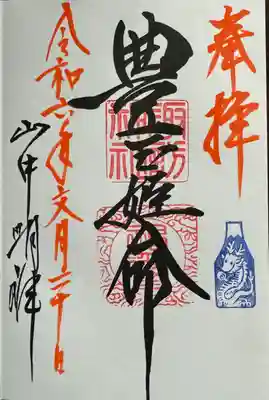 奉拝
豊玉姫命
諏訪神社
令和六年文月二十日
山中明神